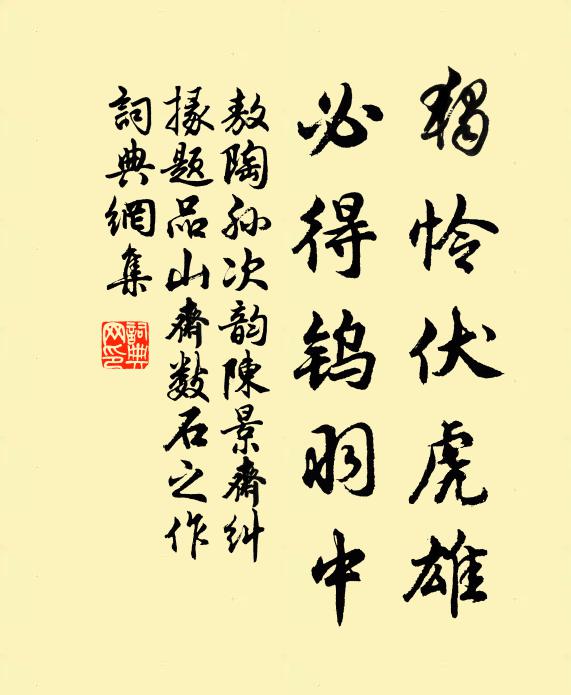 独怜伏虎雄
必得鎢羽中
敖陶孙次韵陳景齋糾
掾题品山齋数石之作
詞典網集
詞典網印